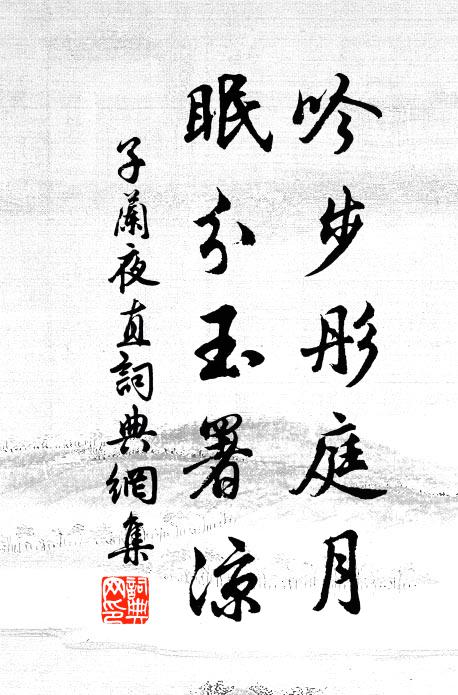 吟步彤庭月
眠分玉署涼
子蘭夜直詞典網集
詞典网印